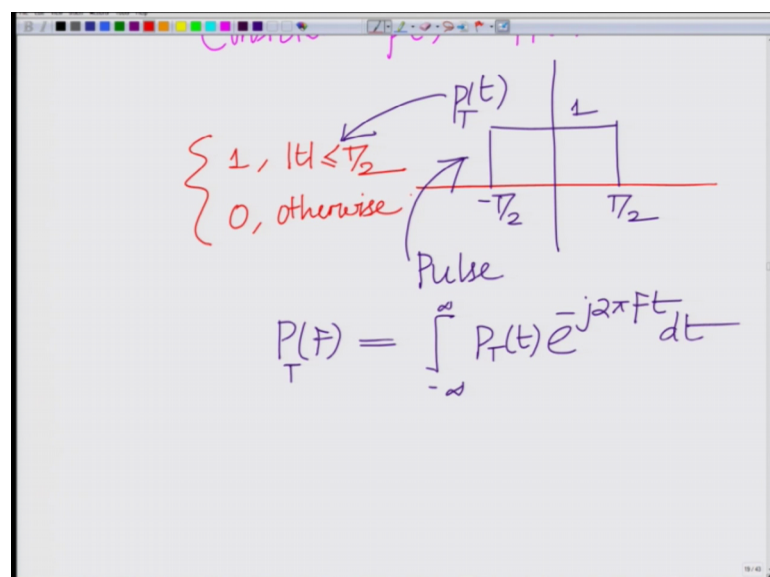 p_T(t)
1
{ 1, |t| ≤ T/2
0, otherwise
-T/2 T/2
Pulse
P_T(F) = ∫_{-∞}^{∞} P_T(t) e^{-j2πFt} dt
19 / 43